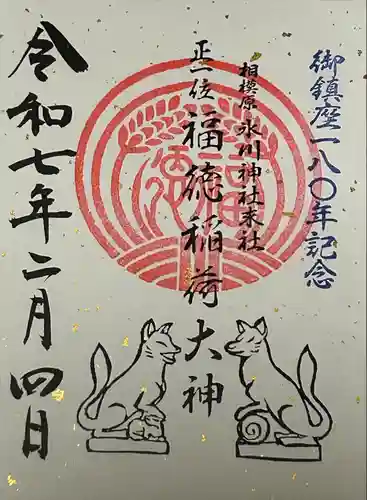 御鎮座一八〇年記念
相模原 氷川神社末社
正一位 福徳稲荷大神
令和七年二月四日
福徳